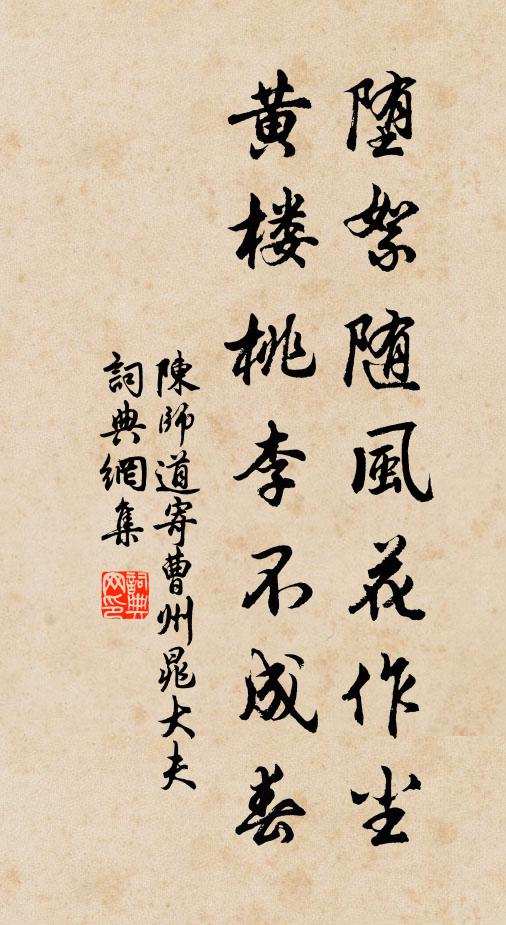 堕絮随風花作尘
黄楼桃李不成春
陳師道寄曹州晁大夫
詞典網集
詞典
网印